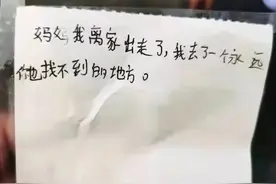 妈妈我离家出走了,我去了一个永远
他找不到的地方。